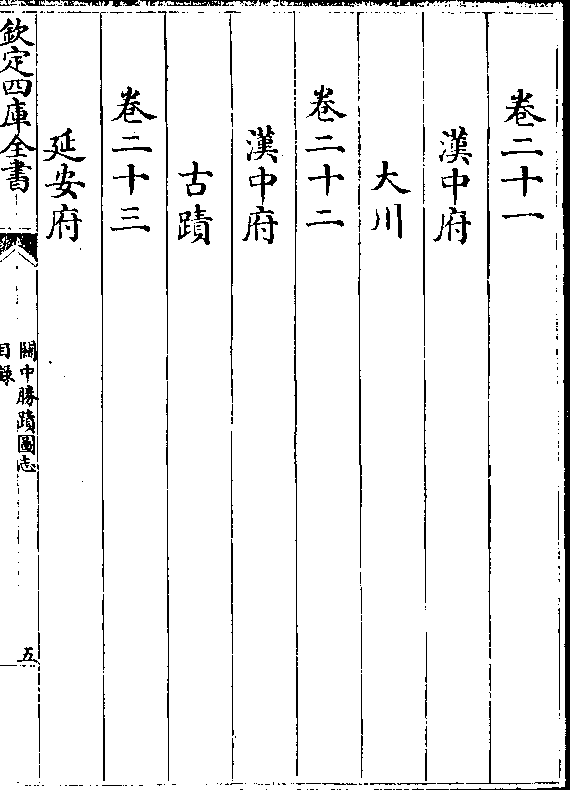 卷二十一
漢中府
大川
卷二十二
漢中府
古蹟
卷二十三
延安府
欽定四庫全書
關中勝蹟圖志
目錄
五